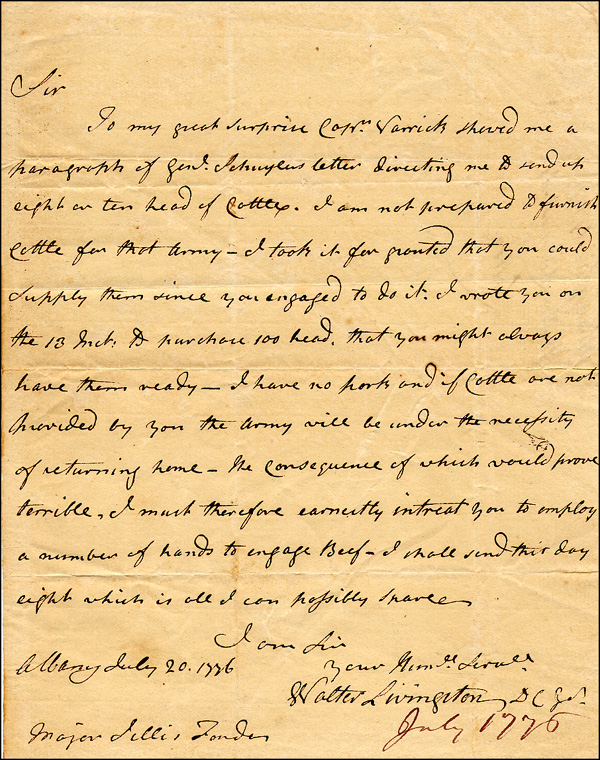 Sir
To my great surprise Capn. Varrick shewed me a
paragraph of Genl. Schuylers letter directing me to send up
eight or ten head of Cattle. I am not prepared to furnish
Cattle for that Army – I took it for granted that you could
supply them since you engaged to do it. I wrote you on
the 13 Inst: to purchase 100 head, that you might always
have them ready – I have no pork and if Cattle are not
provided by you the Army will be under the necessity
of returning home – the consequence of which would prove
terrible, I must therefore earnestly intreat you to employ
a number of hands to engage Beef – I shall send this day
eight which is all I can possibly spare
I am Sir
Albany July 20. 1776
your Humbl. Servt.
Walter Livingston D C Gl.
July 1776
Major Jellis Fonda